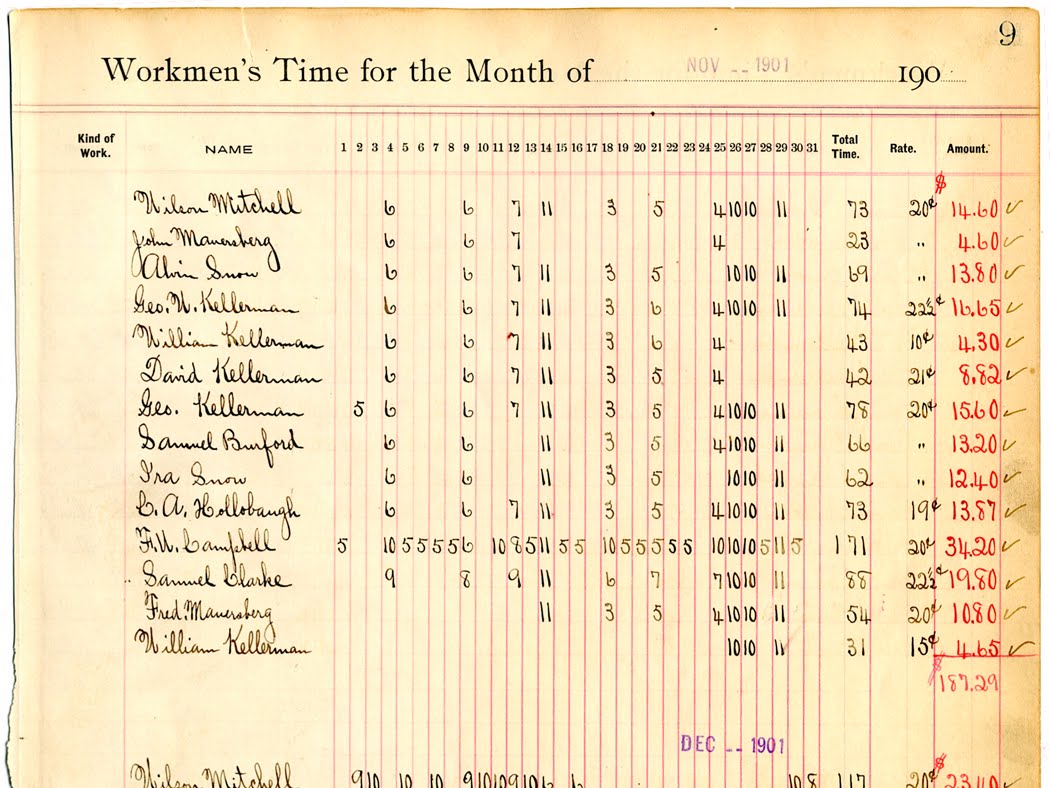 9
Workmen's Time for the Month of NOV -- 1901 190
Kind of Work. NAME 1 2 3 4 5 6 7 8 9 10 11 12 13 14 15 16 17 18 19 20 21 22 23 24 25 26 27 28 29 30 31 Total Time. Rate. Amount.
$
Wilson Mitchell 6 6 7 11 3 5 4 10 10 11 73 20¢ 14.60 ✓
John Mauersberg 6 6 7 4 23 " 4.60 ✓
Alvin Snow 6 6 7 11 3 5 10 10 11 69 " 13.80 ✓
Geo. W. Kellerman 6 6 7 11 3 6 4 10 10 11 74 22½¢ 16.65 ✓
William Kellerman 6 6 7 11 3 6 4 43 10¢ 4.30 ✓
David Kellerman 6 6 7 11 3 5 4 42 21¢ 8.82 ✓
Geo. Kellerman 5 6 6 7 11 3 5 4 10 10 11 78 20¢ 15.60 ✓
Samuel Burford 6 6 11 3 5 4 10 10 11 66 " 13.20 ✓
Ira Snow 6 6 11 3 5 10 10 11 62 " 12.40 ✓
C. A. Hollobaugh 6 6 7 11 3 5 4 10 10 11 73 19¢ 13.87 ✓
F. W. Campbell 5 10 5 5 5 5 6 10 8 5 11 5 5 10 5 5 5 5 5 10 10 10 5 11 5 171 20¢ 34.20 ✓
Samuel Clarke 9 8 9 11 6 7 7 10 10 11 88 22½¢ 19.80 ✓
Fred. Mauersberg 11 3 5 4 10 10 11 54 20¢ 10.80 ✓
William Kellerman 10 10 11 31 15¢ 4.65 ✓
$ 187.29
DEC -- 1901
$
Wilson Mitchell 9 10 10 10 9 10 10 9 10 6 6 10 8 117 20¢ 23.40 ✓